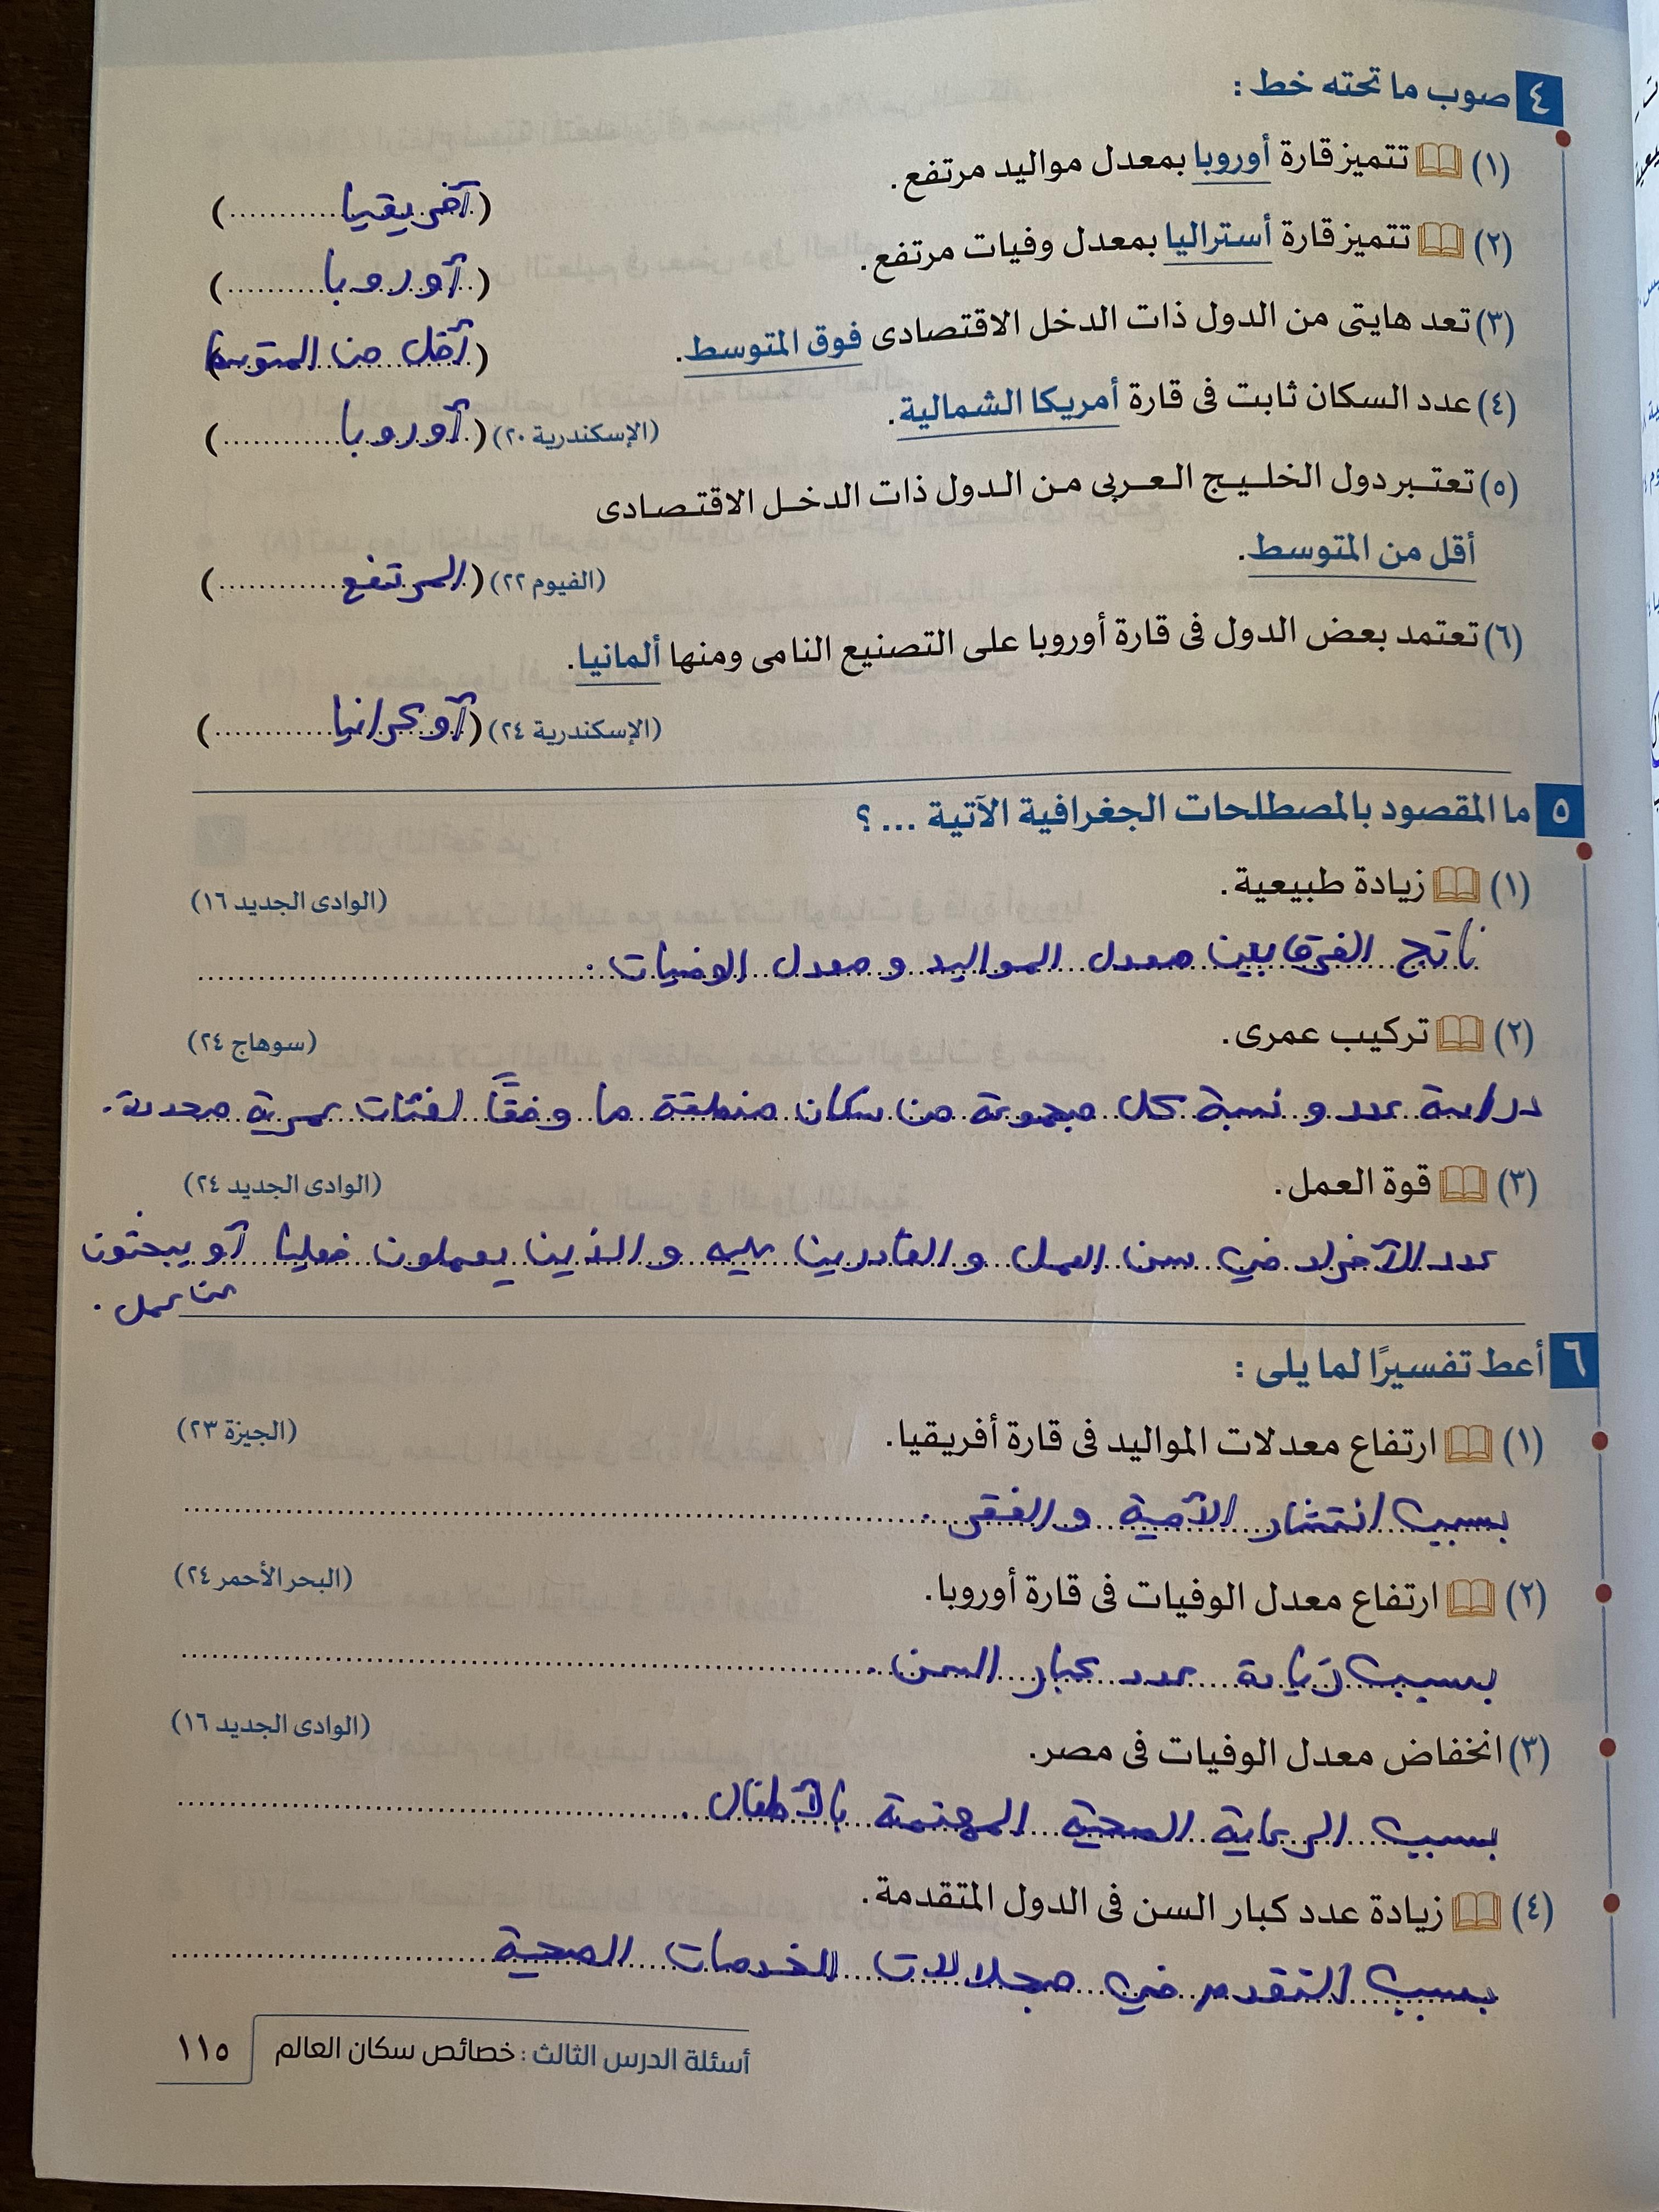 ٤ صوب ما تحته خط :
(١) تتميز قارة أوروبا بمعدل مواليد مرتفع.
(أفريقيا)
(٢) تتميز قارة أستراليا بمعدل وفيات مرتفع.
(أوروبا)
(٣) تعد هايتى من الدول ذات الدخل الاقتصادى فوق المتوسط.
(أقل من المتوسط)
(٤) عدد السكان ثابت فى قارة أمريكا الشمالية.
(الإسكندرية ٢٠) (أوروبا)
(٥) تعتبر دول الخليج العربى من الدول ذات الدخل الاقتصادى
أقل من المتوسط.
(الفيوم ٢٢) (المرتفع)
(٦) تعتمد بعض الدول فى قارة أوروبا على التصنيع النامى ومنها ألمانيا.
(الإسكندرية ٢٤) (أوكرانيا)
٥ ما المقصود بالمصطلحات الجغرافية الآتية ... ؟
(١) زيادة طبيعية. (الوادى الجديد ١٦)
ناتج الفرق بين معدل المواليد و معدل الوفيات.
(٢) تركيب عمرى. (سوهاج ٢٤)
دراسة عدد و نسبة كل مجموعة من سكان منطقة ما وفقًا لفئات عمرية محددة.
(٣) قوة العمل. (الوادى الجديد ٢٤)
عدد الأفراد في سن العمل و القادرين عليه و الذين يعملون فعليا أو يبحثون
عن عمل.
٦ أعط تفسيرًا لما يلى :
(١) ارتفاع معدلات المواليد فى قارة أفريقيا. (الجيزة ٢٣)
بسبب انتشار الأمية و الفقر.
(٢) ارتفاع معدل الوفيات فى قارة أوروبا. (البحر الأحمر ٢٤)
بسبب زيادة عدد كبار السن.
(٣) انخفاض معدل الوفيات فى مصر. (الوادى الجديد ١٦)
بسبب الرعاية الصحية المهتمة بالأطفال.
(٤) زيادة عدد كبار السن فى الدول المتقدمة.
بسبب التقدم في مجلالات الخدمات الصحية
أسئلة الدرس الثالث : خصائص سكان العالم ١١٥